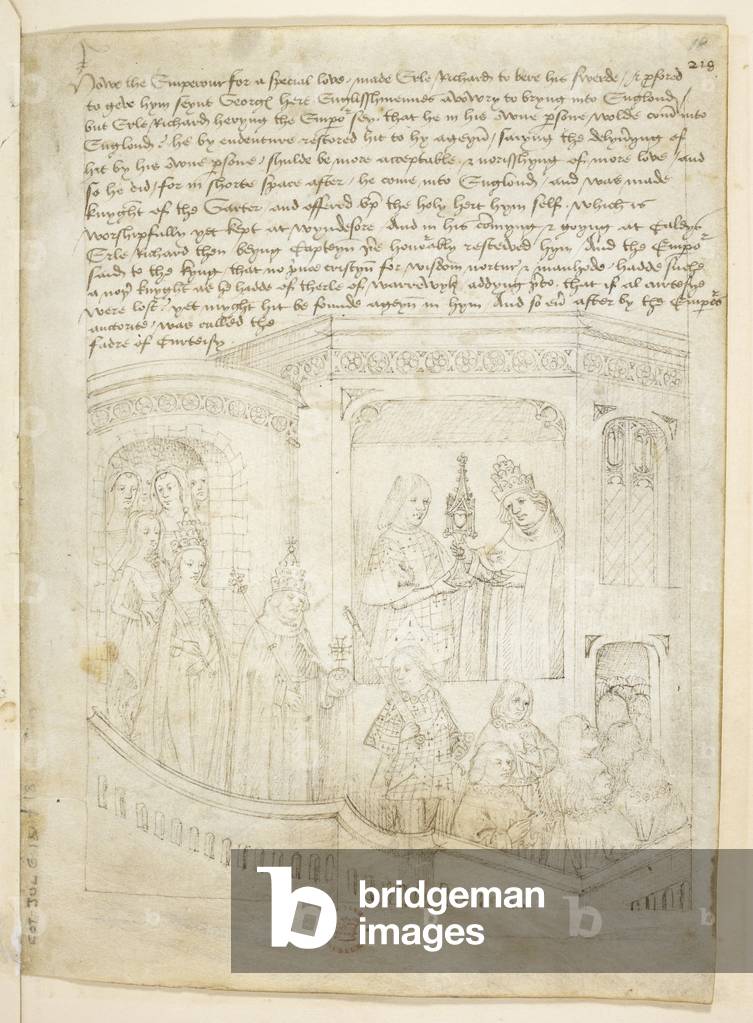 218
Nowe the Emperour for a special love / made Erle Richard to bere his swerde / & pfored
to geve hym seynt Georgℓ hert Englisshmennes avowry to bryng into Englond /
but Erle Richard heryng the Empor sey that he in his owne psone wolde com into
Englond / he by endenture restored hit to hy ageyn / saiyng the delyvyng of
hit by his owne psone / shulde be more acceptable & norisshyng of more love / And
so he did / for in shorte space after / he come into Englond / and was made
knyght of the Garter and offered up the holy hert hym self which is
worshipfully yet kept at wyndesore And in his comyng & goyng at Caleys
Erle Richard then beyng Capteyn ther honorably resceived hym And the Empor
said to the kyng that no pnce cristyn for wisdom nortur & manhode / hadde suche
a noþ knyght as he hadde of therle of warrewyk addyng therto that if al curtesye
were lost / yet myght hit be founde ageyn in hym And so ev after by the Emposs
auctorite / was called the
fadre of Curteisy
bridgeman
images